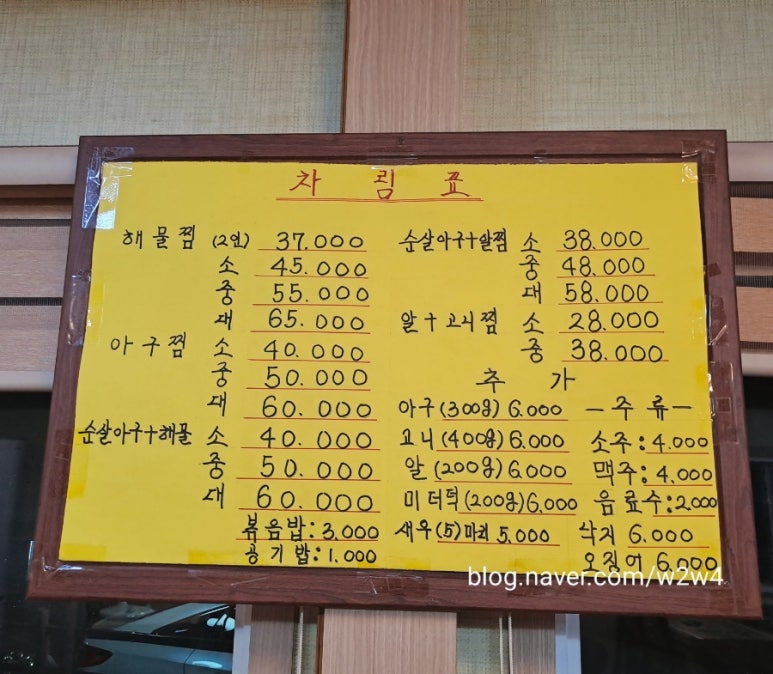 차림표
해물찜 (2인) 37.000
소 45.000
중 55.000
대 65.000
아구찜 소 40.000
중 50.000
대 60.000
순살아구+해물 소 40.000
중 50.000
대 60.000
볶음밥: 3,000
공기밥: 1,000
순살아구+알찜 소 38.000
중 48.000
대 58.000
알+고니찜 소 28.000
중 38.000
추가
아구 (300g) 6.000
고니 (400g) 6.000
알 (200g) 6,000
미더덕 (200g) 6,000
새우 (5)마리 5,000
-주류-
소주: 4.000
맥주: 4,000
음료수: 2,000
낙지 6.000
오징어 6.000
blog.naver.com/w2w4